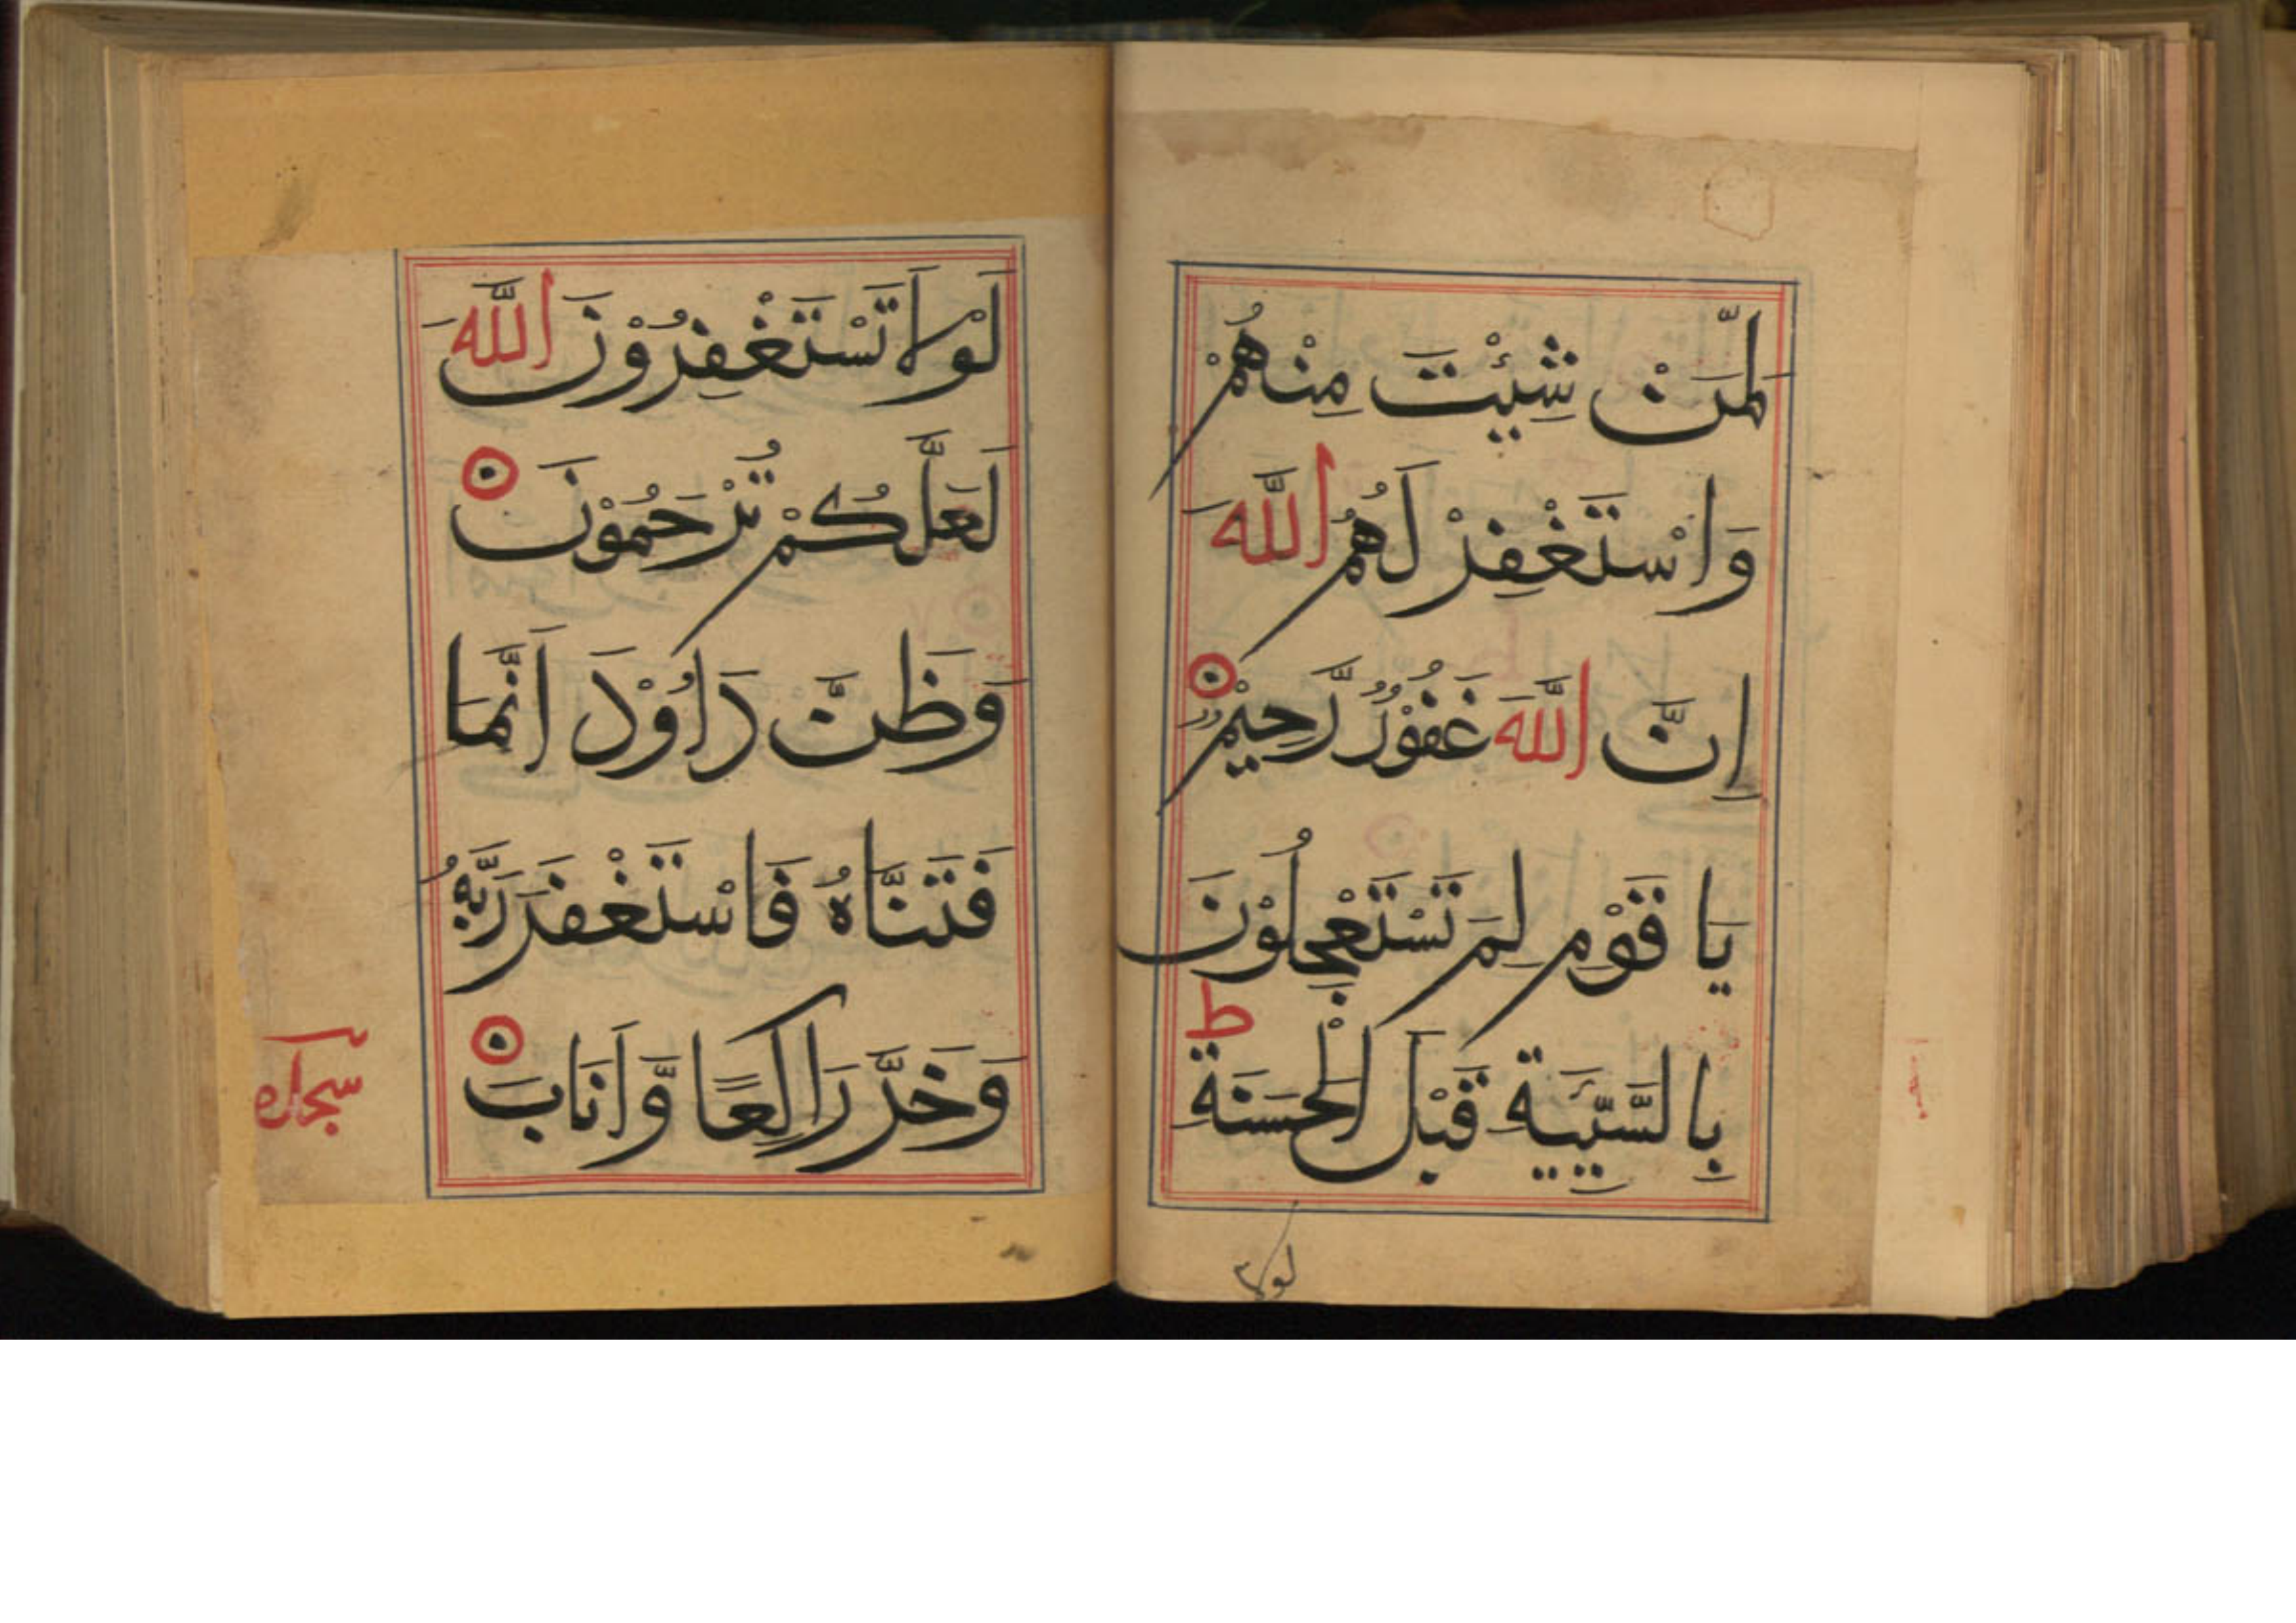 لِّمَنْ شِئْتَ مِنْهُمْ
وَاسْتَغْفِرْ لَهُمُ اللَّهَ
إِنَّ اللَّهَ غَفُوْرٌ رَّحِيْمٌ
يَا قَوْمِ لِمَ تَسْتَعْجِلُوْنَ
بِالسَّيِّئَيةِ قَبْلَ الْحَسَنَةِ ط
لولا
لَوْلَا تَسْتَغْفِرُوْنَ اللَّهَ
لَعَلَّكُمْ تُرْحَمُوْنَ
وَظَنَّ دَاوُوْدَ اَنَّمَا
فَتَنَّاهُ فَاسْتَغْفَرَ رَبَّهُ
وَخَرَّ رَاكِعًا وَّاَنَابَ
سجدة